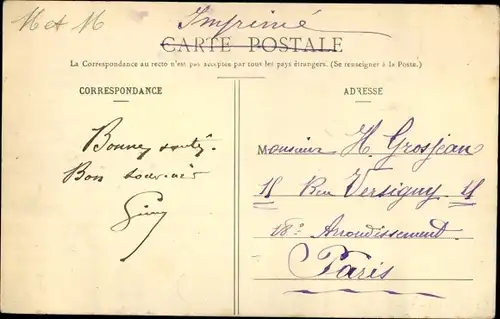 M & M
Imprimé
CARTE POSTALE
La Correspondance au recto n'est pas acceptée par tous les pays étrangers. (Se renseigner à la Poste.)
CORRESPONDANCE
Bonne santé.
Bon souvenir
ADRESSE
Monsieur H. Grosjean
15 Rue Versigny 15
18e Arrondissement
Paris